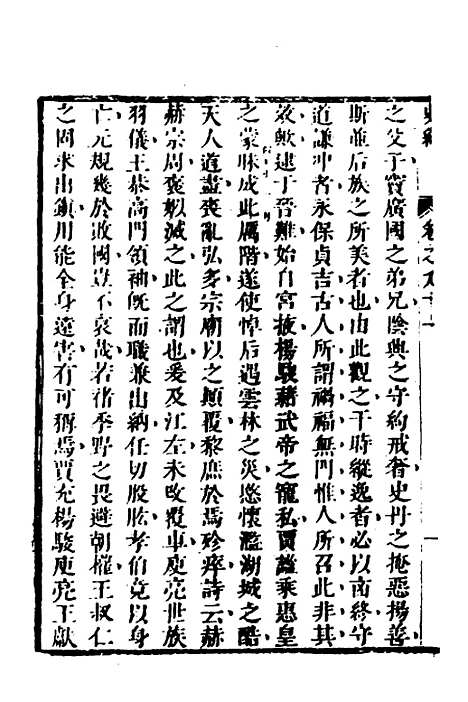 史緯 卷之九十一 一
之父子竇廣國之弟兄陰興之守約戒奢史丹之掩惡揚善
斯並后族之所美者也由此觀之干時縱逸者必以凶終守
道謙冲者永保貞吉古人所謂禍福無門惟人所召此非其
效歟逮于晉難始自宮掖楊駿藉武帝之寵私賈謐乘惠皇
之蒙昧成此厲階遂使悼后遇雲林之災愍懷濫湖城之酷
天人道盡喪亂弘多宗廟以之顛覆黎庶於焉殄瘁詩云赫
赫宗周褒姒滅之此之謂也爰及江左未改覆車庾亮世族
羽儀王恭高門領袖既而職兼出納任切股肱孝伯竟以身
亡元規幾於敗國豈不哀哉若褚季野之畏避朝權王叔仁
之固求出鎮用能全身遠害有可稱焉賈充楊駿庾亮王獻